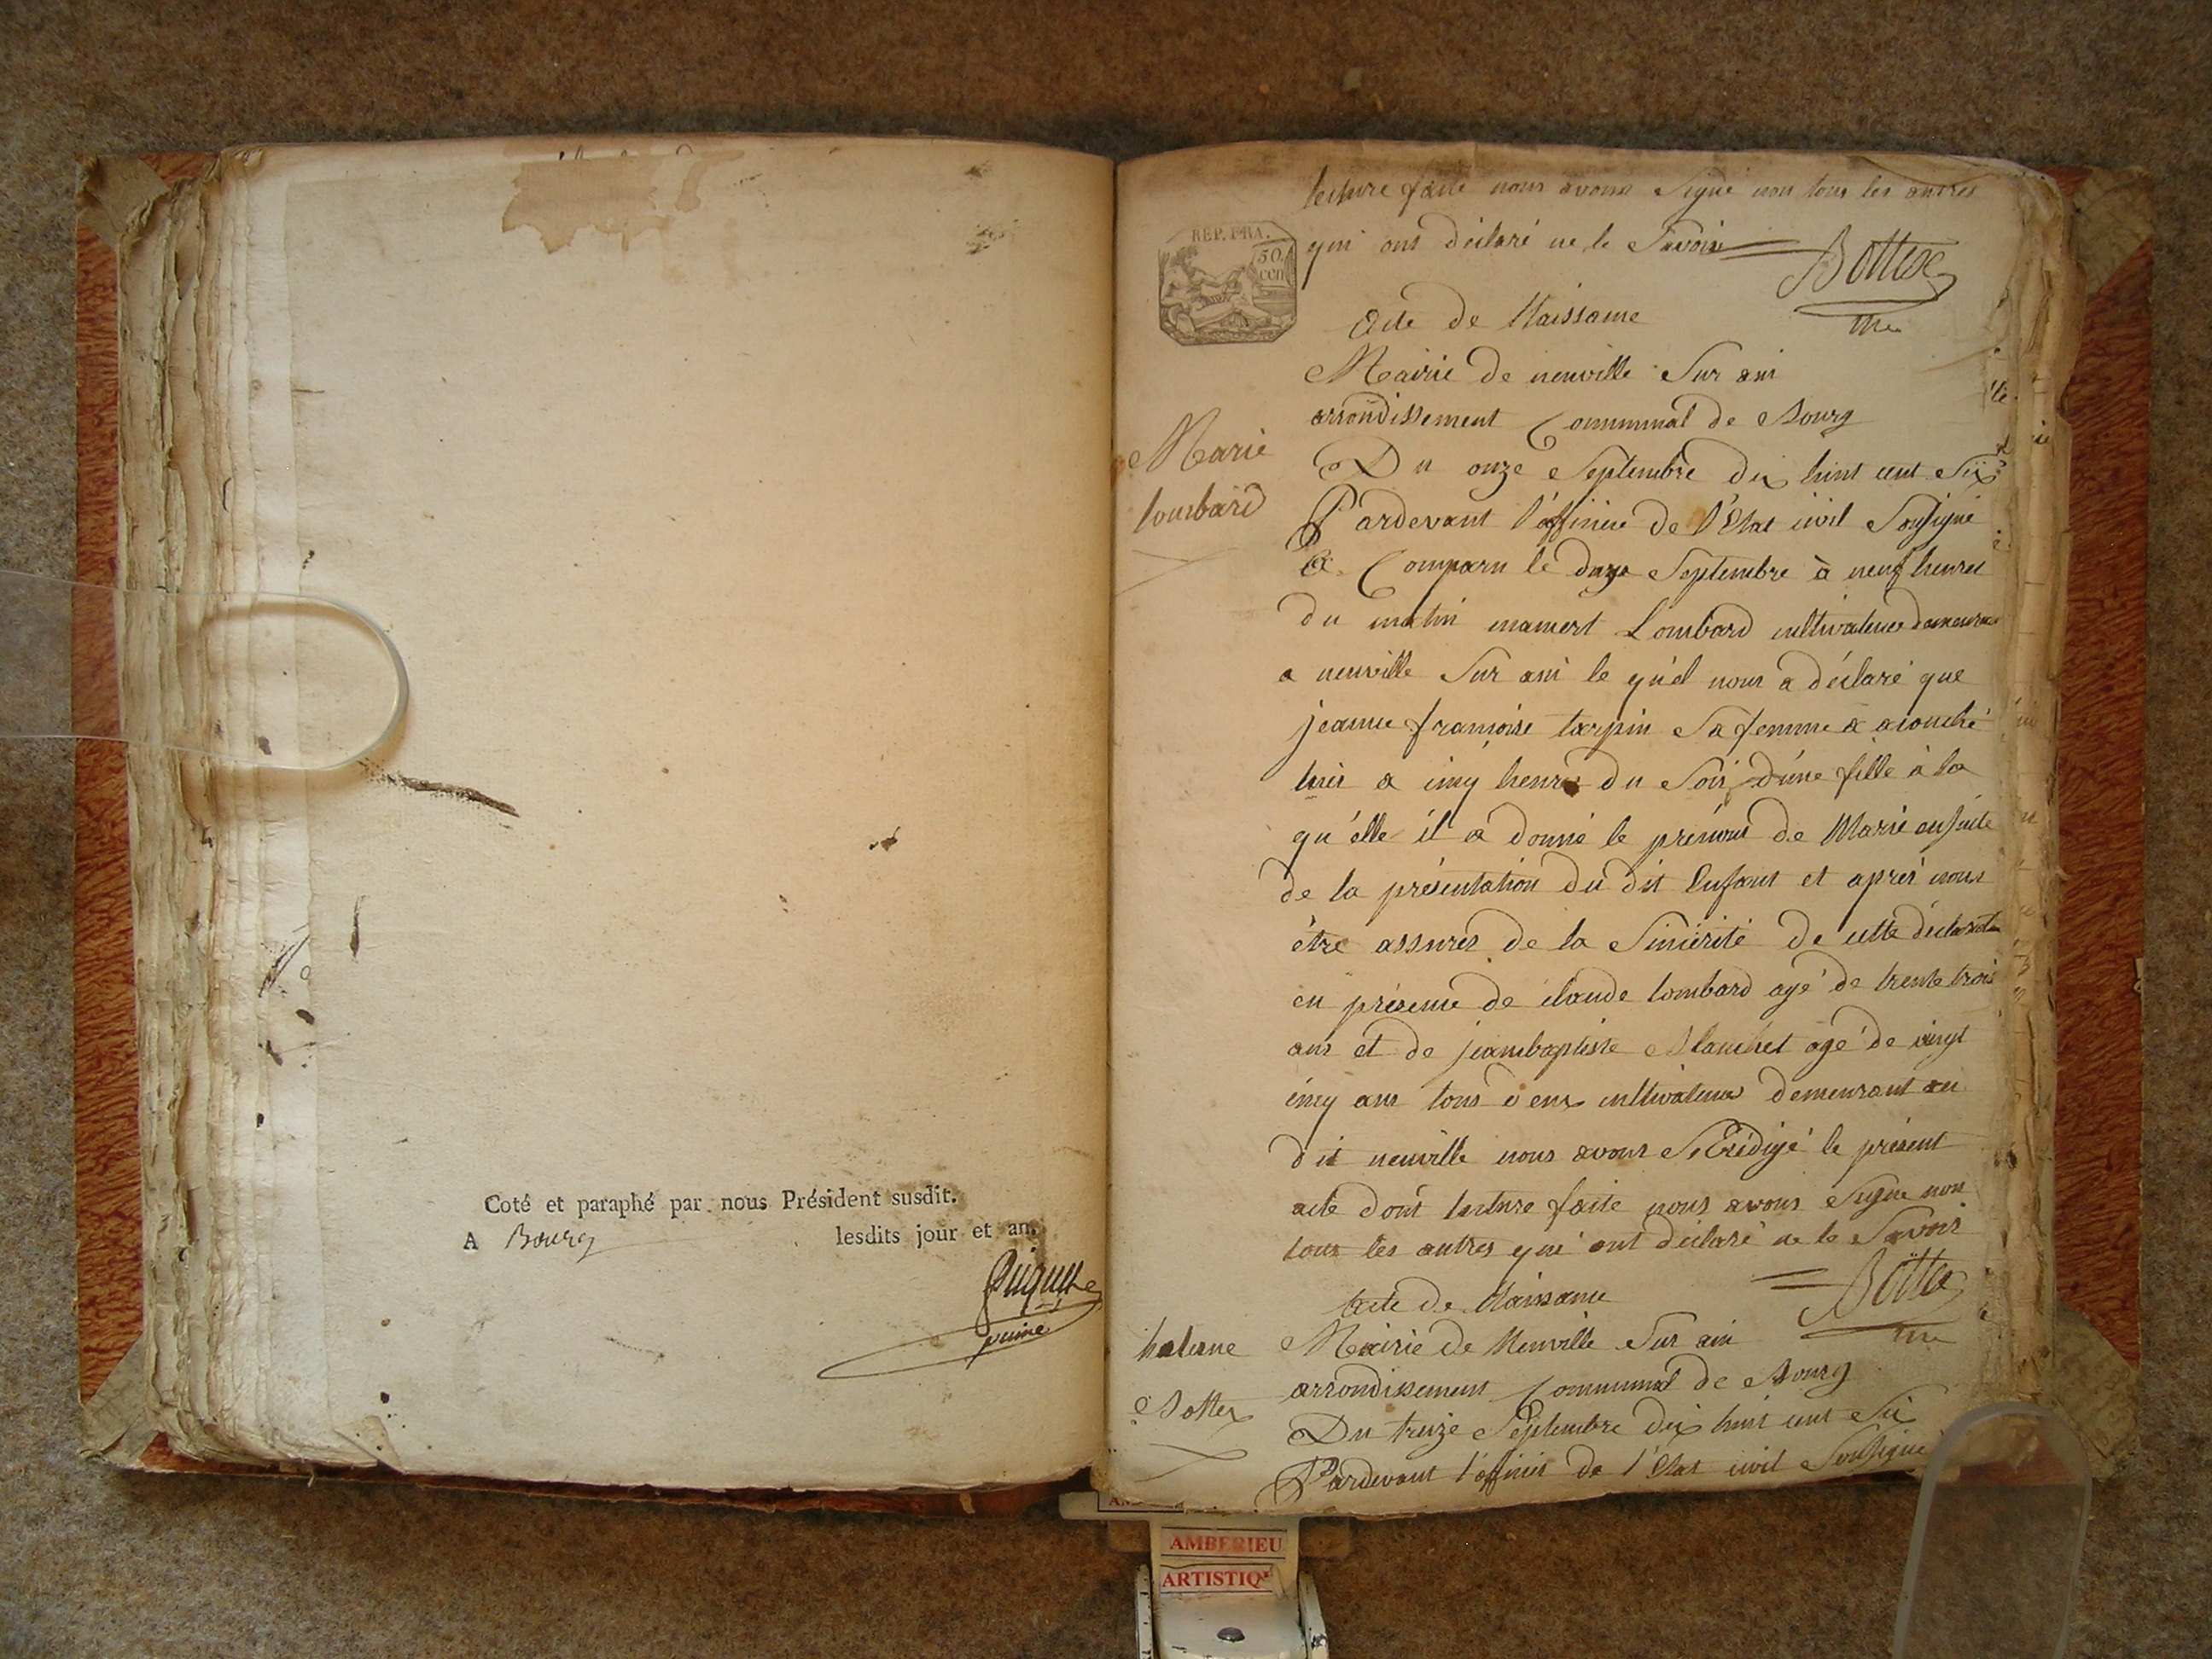 Coté et paraphé par nous Président susdit.
A Bourg lesdits jour et an.
lecture faite nous avons Signé non tous les autres
qui ont déclaré ne le Savoir
REP. FRA.
50
cen
Bottex
Acte de Naissance
Mairie de neuville Sur ain
arrondissement Communal de Bourg
Marie
lombard
Du onze Septembre dix huit cent Six
Pardevant l'officier de l'Etat civil Sousigné
a Comparu le Septembre à neuf heures
du matin mamert Lombard cultivateur demeurant
a neuville Sur ain le quel nous a déclaré que
jeanne françoise tarpin Sa femme a acouché
hier a cinq heures du Soir d'une fille à la
qu'elle il a donné le prénom de Marie ensuite
de la présentation du dit Enfant et aprés nous
être assurés de la Sincérité de cette déclaration
en présence de claude lombard agé de trente trois
ans et de jeanbaptiste Blanchet agé de vingt
cinq ans tous deux cultivateurs demeurant au
dit neuville nous avons rédigé le présent
acte dont lecture faite nous avons Signé non
tous les autres qui ont déclaré ne le Savoir
Bottex
acte de Naissance
Mairie de Neuville Sur ain
arrondissement Communal de Bourg
Bottex
Du treize Septembre dix huit cent Six
Pardevant l'officier de l'Etat civil Sousigné
AMBERIEU
ARTISTIQ